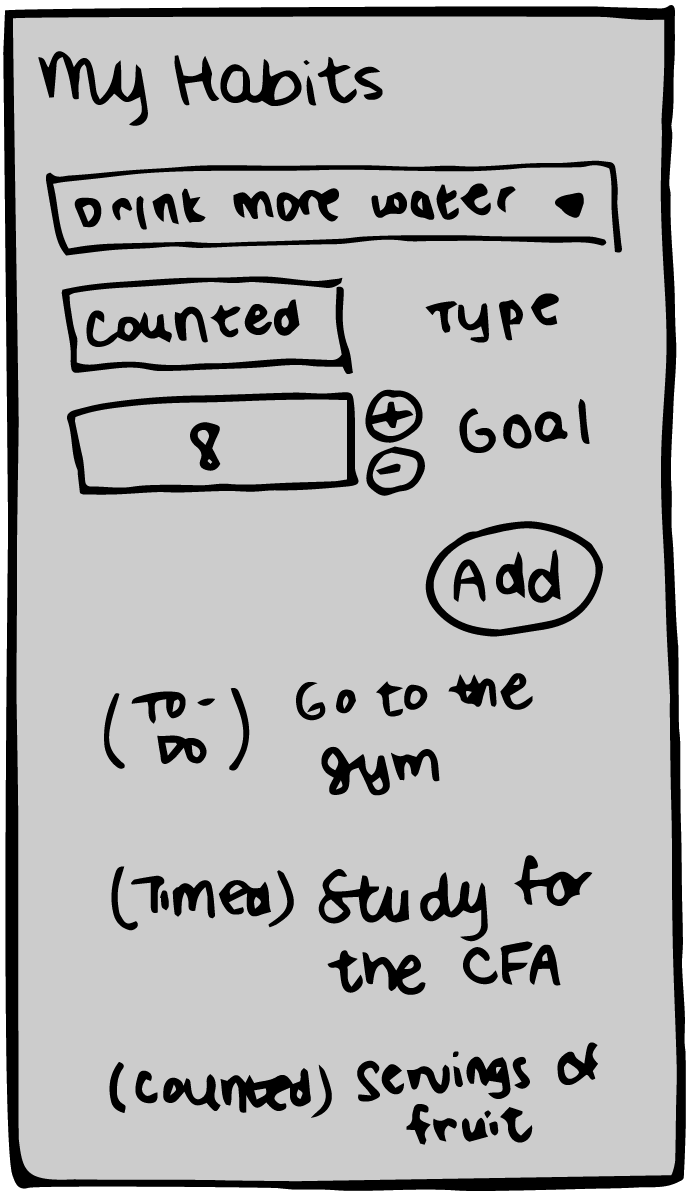 My Habits
Drink more water
Counted Type
8 + - Goal
Add
(TO-DO) Go to the
gym
(Timed) Study for
the CFA
(Counted) Servings of
fruit